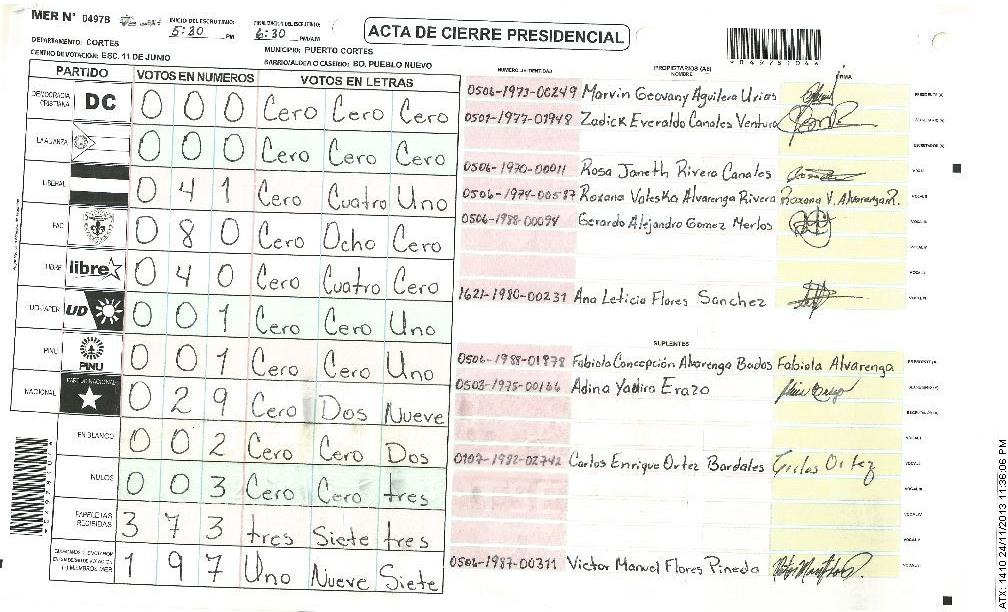 MER N° 04978
INICIO DEL ESCRUTINIO:
5:30 PM
FINALIZACION DEL ESCRUTINIO:
6:30 PM/AM
ACTA DE CIERRE PRESIDENCIAL
DEPARTAMENTO: CORTES
MUNICIPIO: PUERTO CORTES
CENTRO DE VOTACION: ESC. 11 DE JUNIO
BARRIO/ALDEA O CASERIO: BO. PUEBLO NUEVO
PARTIDO VOTOS EN NUMEROS VOTOS EN LETRAS
DEMOCRACIA CRISTIANA DC 0 0 0 Cero Cero Cero
LA ALIANZA 0 0 0 Cero Cero Cero
LIBERAL 0 4 1 Cero Cuatro Uno
PAC 0 8 0 Cero Ocho Cero
LIBRE libre 0 4 0 Cero Cuatro Cero
UD 0 0 1 Cero Cero Uno
PINU PINU 0 0 1 Cero Cero Uno
NACIONAL PARTIDO NACIONAL 0 2 9 Cero Dos Nueve
EN BLANCO 0 0 2 Cero Cero Dos
NULOS 0 0 3 Cero Cero tres
PAPELETAS RECIBIDAS 3 7 3 tres Siete tres
1 9 7 Uno Nueve Siete
NUMERO DE IDENTIDAD PROPIETARIOS (AS) NOMBRE FIRMA
0506-1973-00249 Marvin Geovany Aguilera Urias PRESIDENTE (A)
0501-1977-01948 Zadick Everaldo Canales Ventura SECRETARIO (A)
ESCRUTADOR (A)
0506-1970-00011 Rosa Janeth Rivera Canales VOCAL I
0506-1974-00587 Roxana Valeska Alvarenga Rivera Roxana V. Alvarenga R. VOCAL II
0506-1988-00094 Gerardo Alejandro Gomez Merlos VOCAL III
VOCAL IV
VOCAL V
1621-1980-00231 Ana Leticia Flores Sanchez
SUPLENTES
0506-1988-01978 Fabiola Concepción Alvarenga Bados Fabiola Alvarenga
0503-1975-00166 Adina Yadira Erazo
0107-1982-02742 Carlos Enrique Ortez Bardales Carlos Ortez
0506-1987-00311 Victor Manuel Flores Pineda
ATX: 1410 24/11/2013 11:36:06 PM